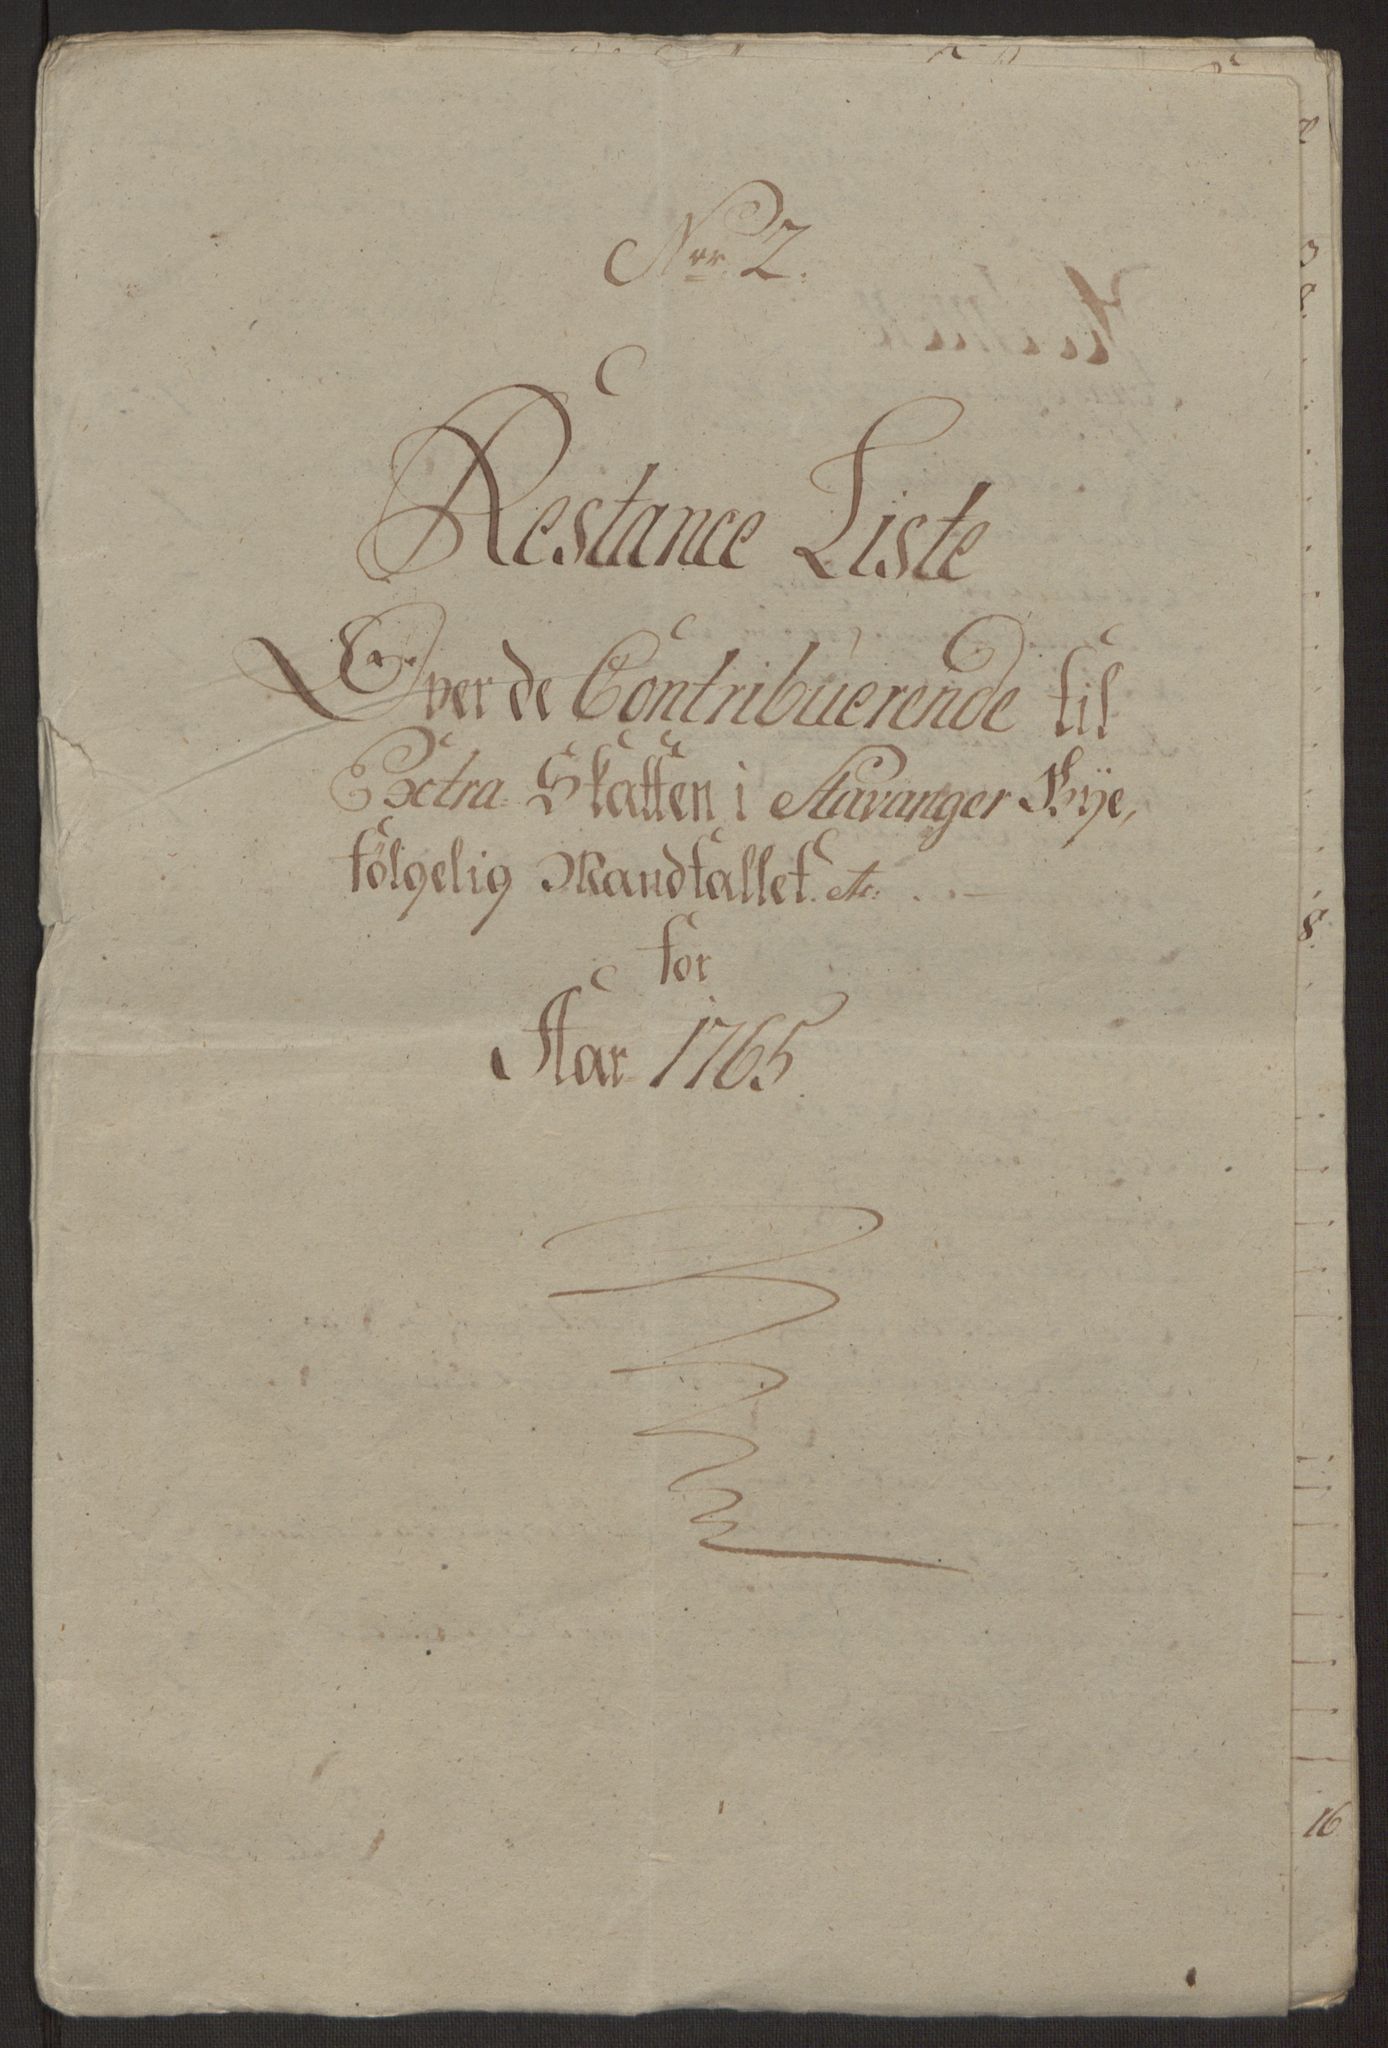 Nrr. 2.
Restance Liste
Over de Contribuerende til
Extra-Skatten i Stavanger Bye,
følgelig Mandtallet etc:
for
Aar 1765
2
3
8
8.
16